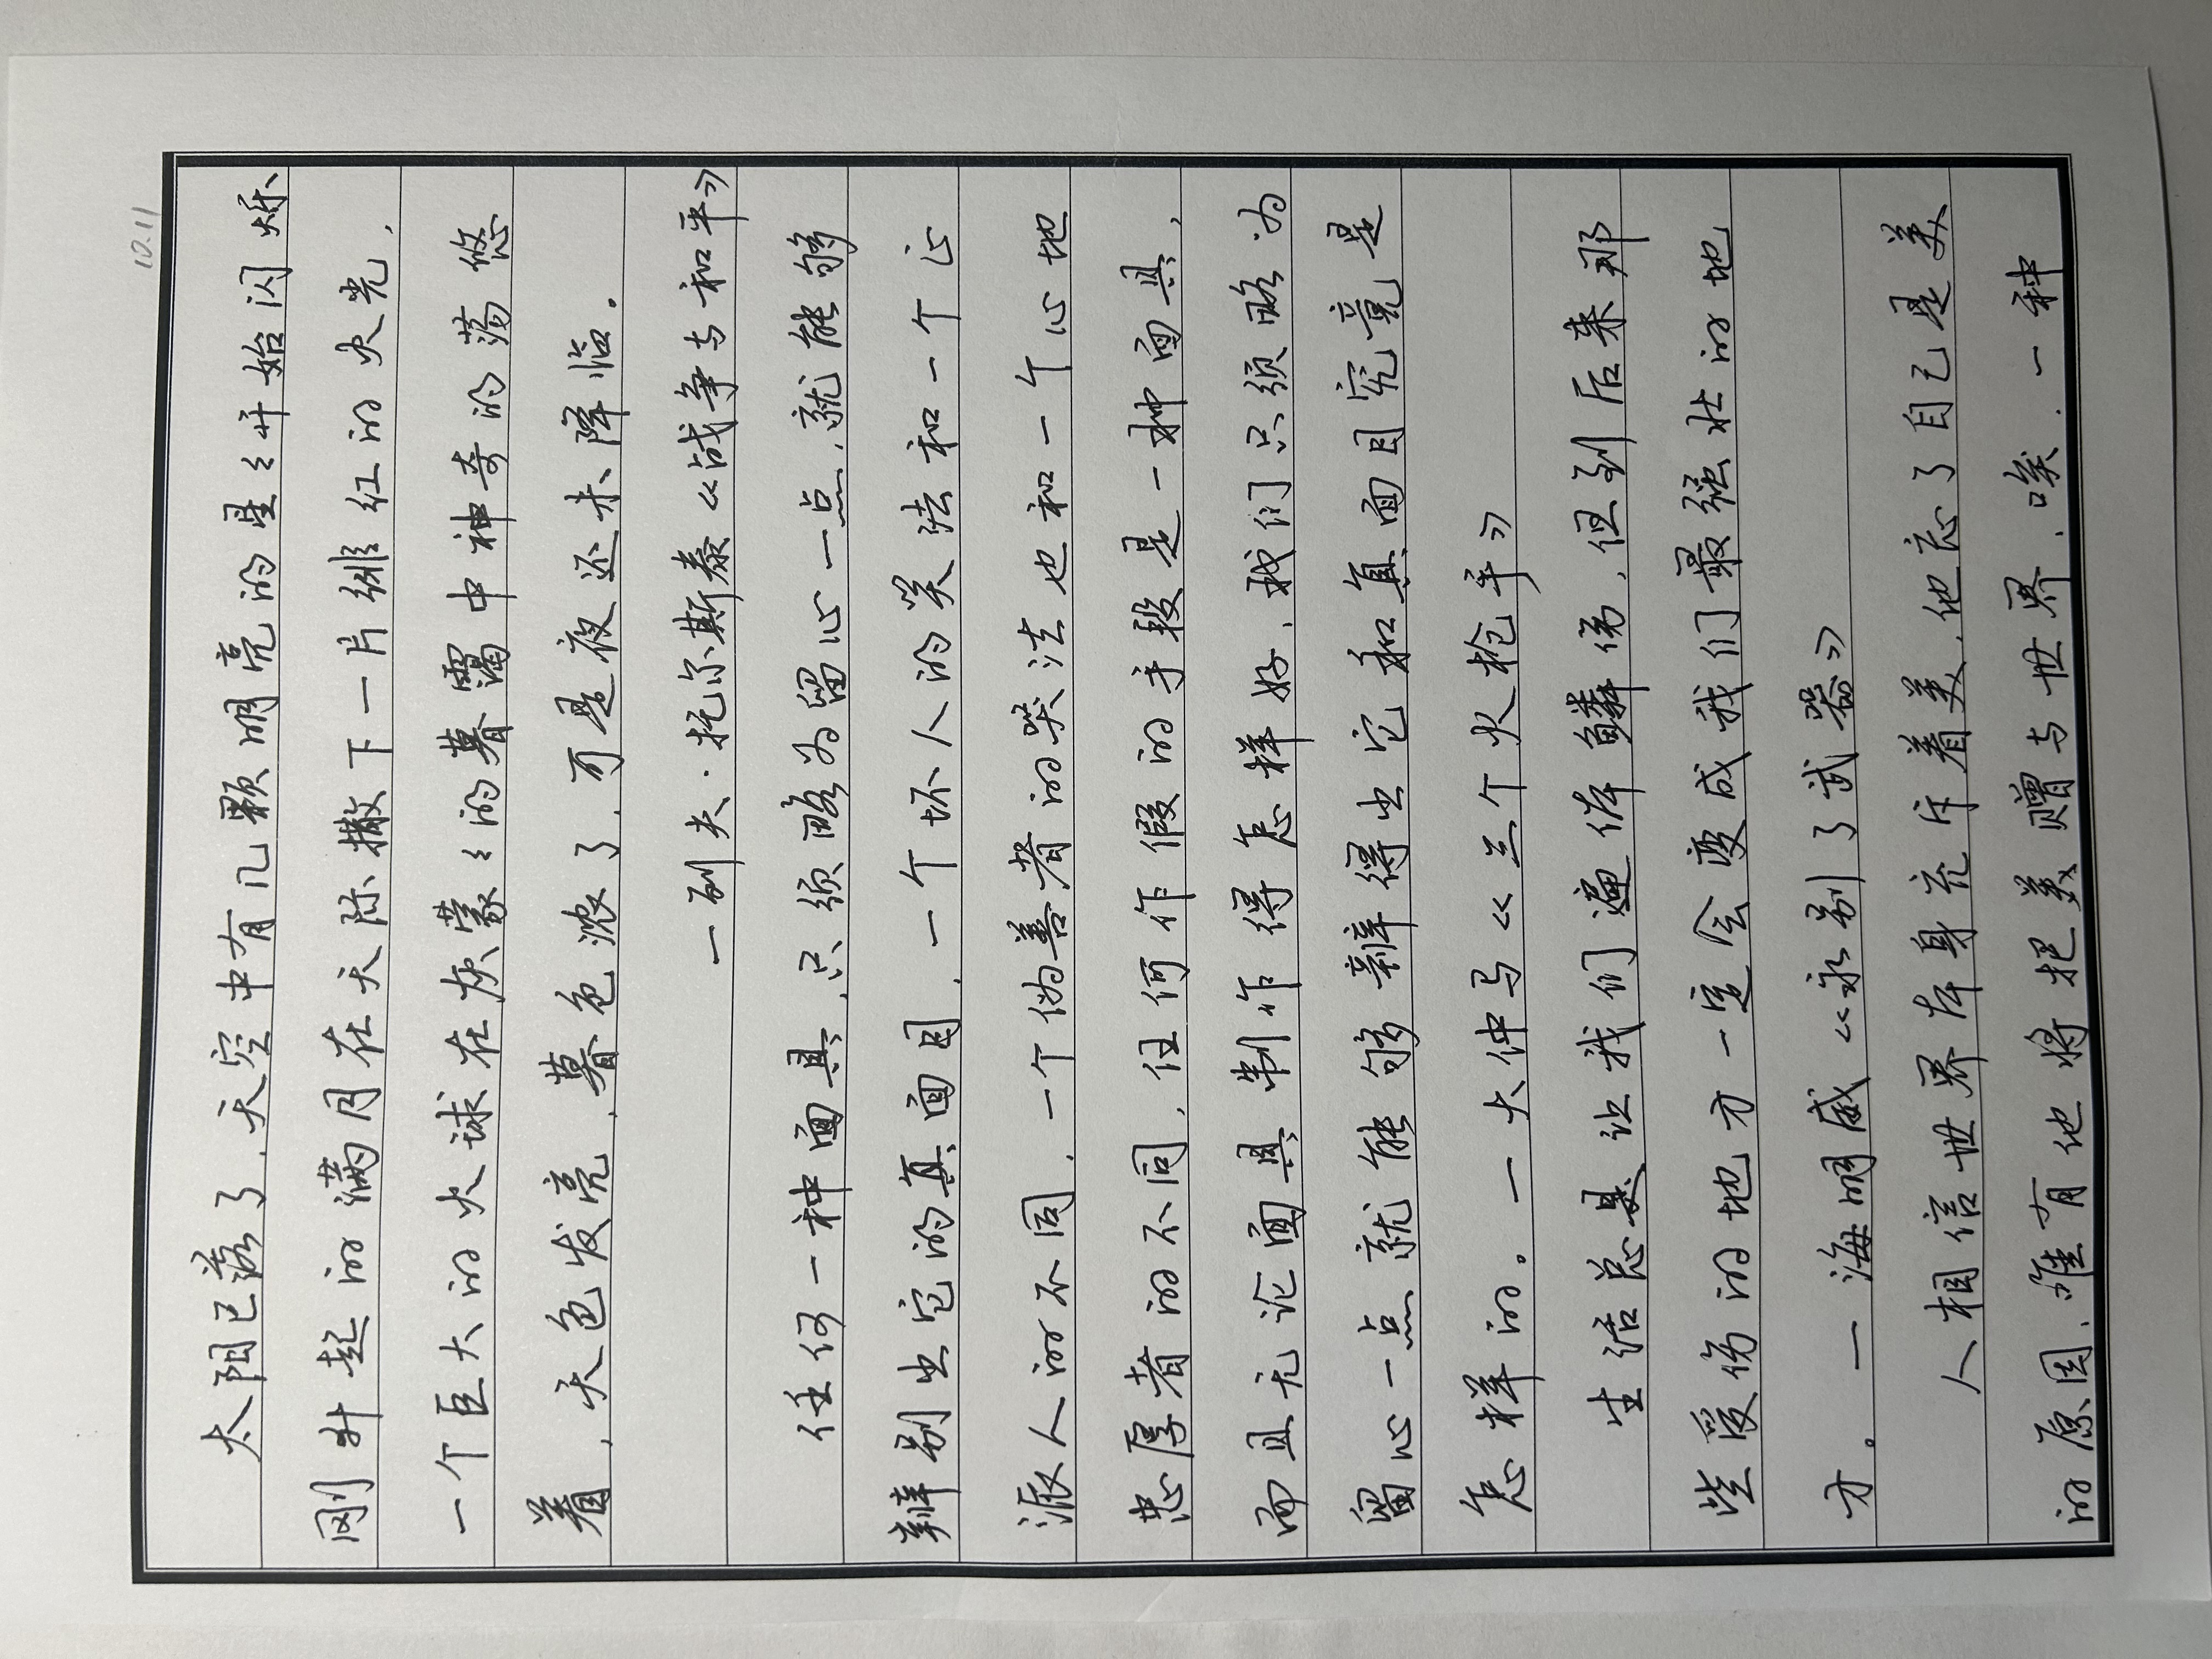 10.11
太阳已落了,天空中有几颗明亮的星々开始闪烁
刚升起的满月在天际撒下一片绯红的火光,
一个巨大的火球在灰蒙々的暮霭中神奇的荡悠
着,天色发亮,暮色浓了,可是夜还未降临。
—列夫·托尔斯泰《战争与和平》
任何一种面具,只须略为留心一点,就能够
辨别出它的真面目,一个坏人的哭法和一个正
派人的不同,一个伪善者的哭法也和一个心地
忠厚者的不同,任何作假的手段是一种面具,
而且无论面具制作得怎样好,我们只须略为
留心一点就能够辨得出它和真面目究竟是
怎样的。—大仲马《三个火枪手》
生活总是让我们遍体鳞伤,但到后来那
些受伤的地方一定会变成我们最强壮的地
方。—海明威《永别了武器》
人相信世界本身充斥着美,他忘了自己是美
的原因,唯有他将把美赠与世界,唉,一种